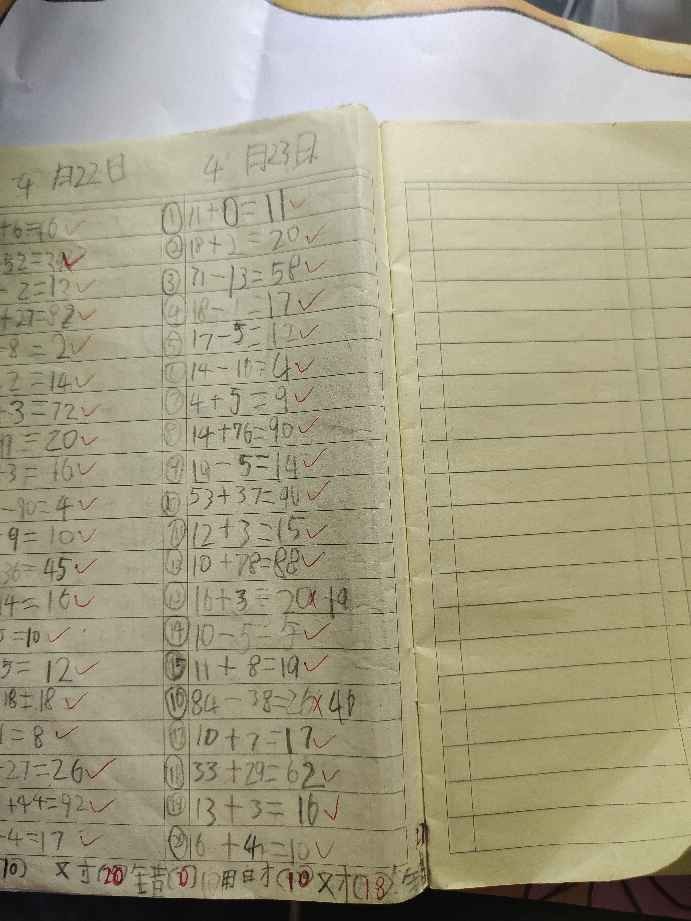 4月22日
+6=16
-52=31
-2=12
+27=82
-8=2
2=14
+3=72
=20
-3=16
-90=4
9=10
36=45
14=16
5=10
5=12
18=18
1=8
-27=26
+44=92
-4=17
4月23日
①11+0=11
②18+2=20
③71-13=58
④18-1=17
⑤17-5=12
⑥14-10=4
⑦4+5=9
⑧14+76=90
⑨19-5=14
⑩53+37=90
⑪12+3=15
⑫10+78=88
⑬16+3=20×19
⑭10-5=5
⑮11+8=19
⑯84-38=26×46
⑰10+7=17
⑱33+29=62
⑲13+3=16
⑳16+4=10
10) 又寸(20) 错(0) 用日寸(10) 又寸(18) 错